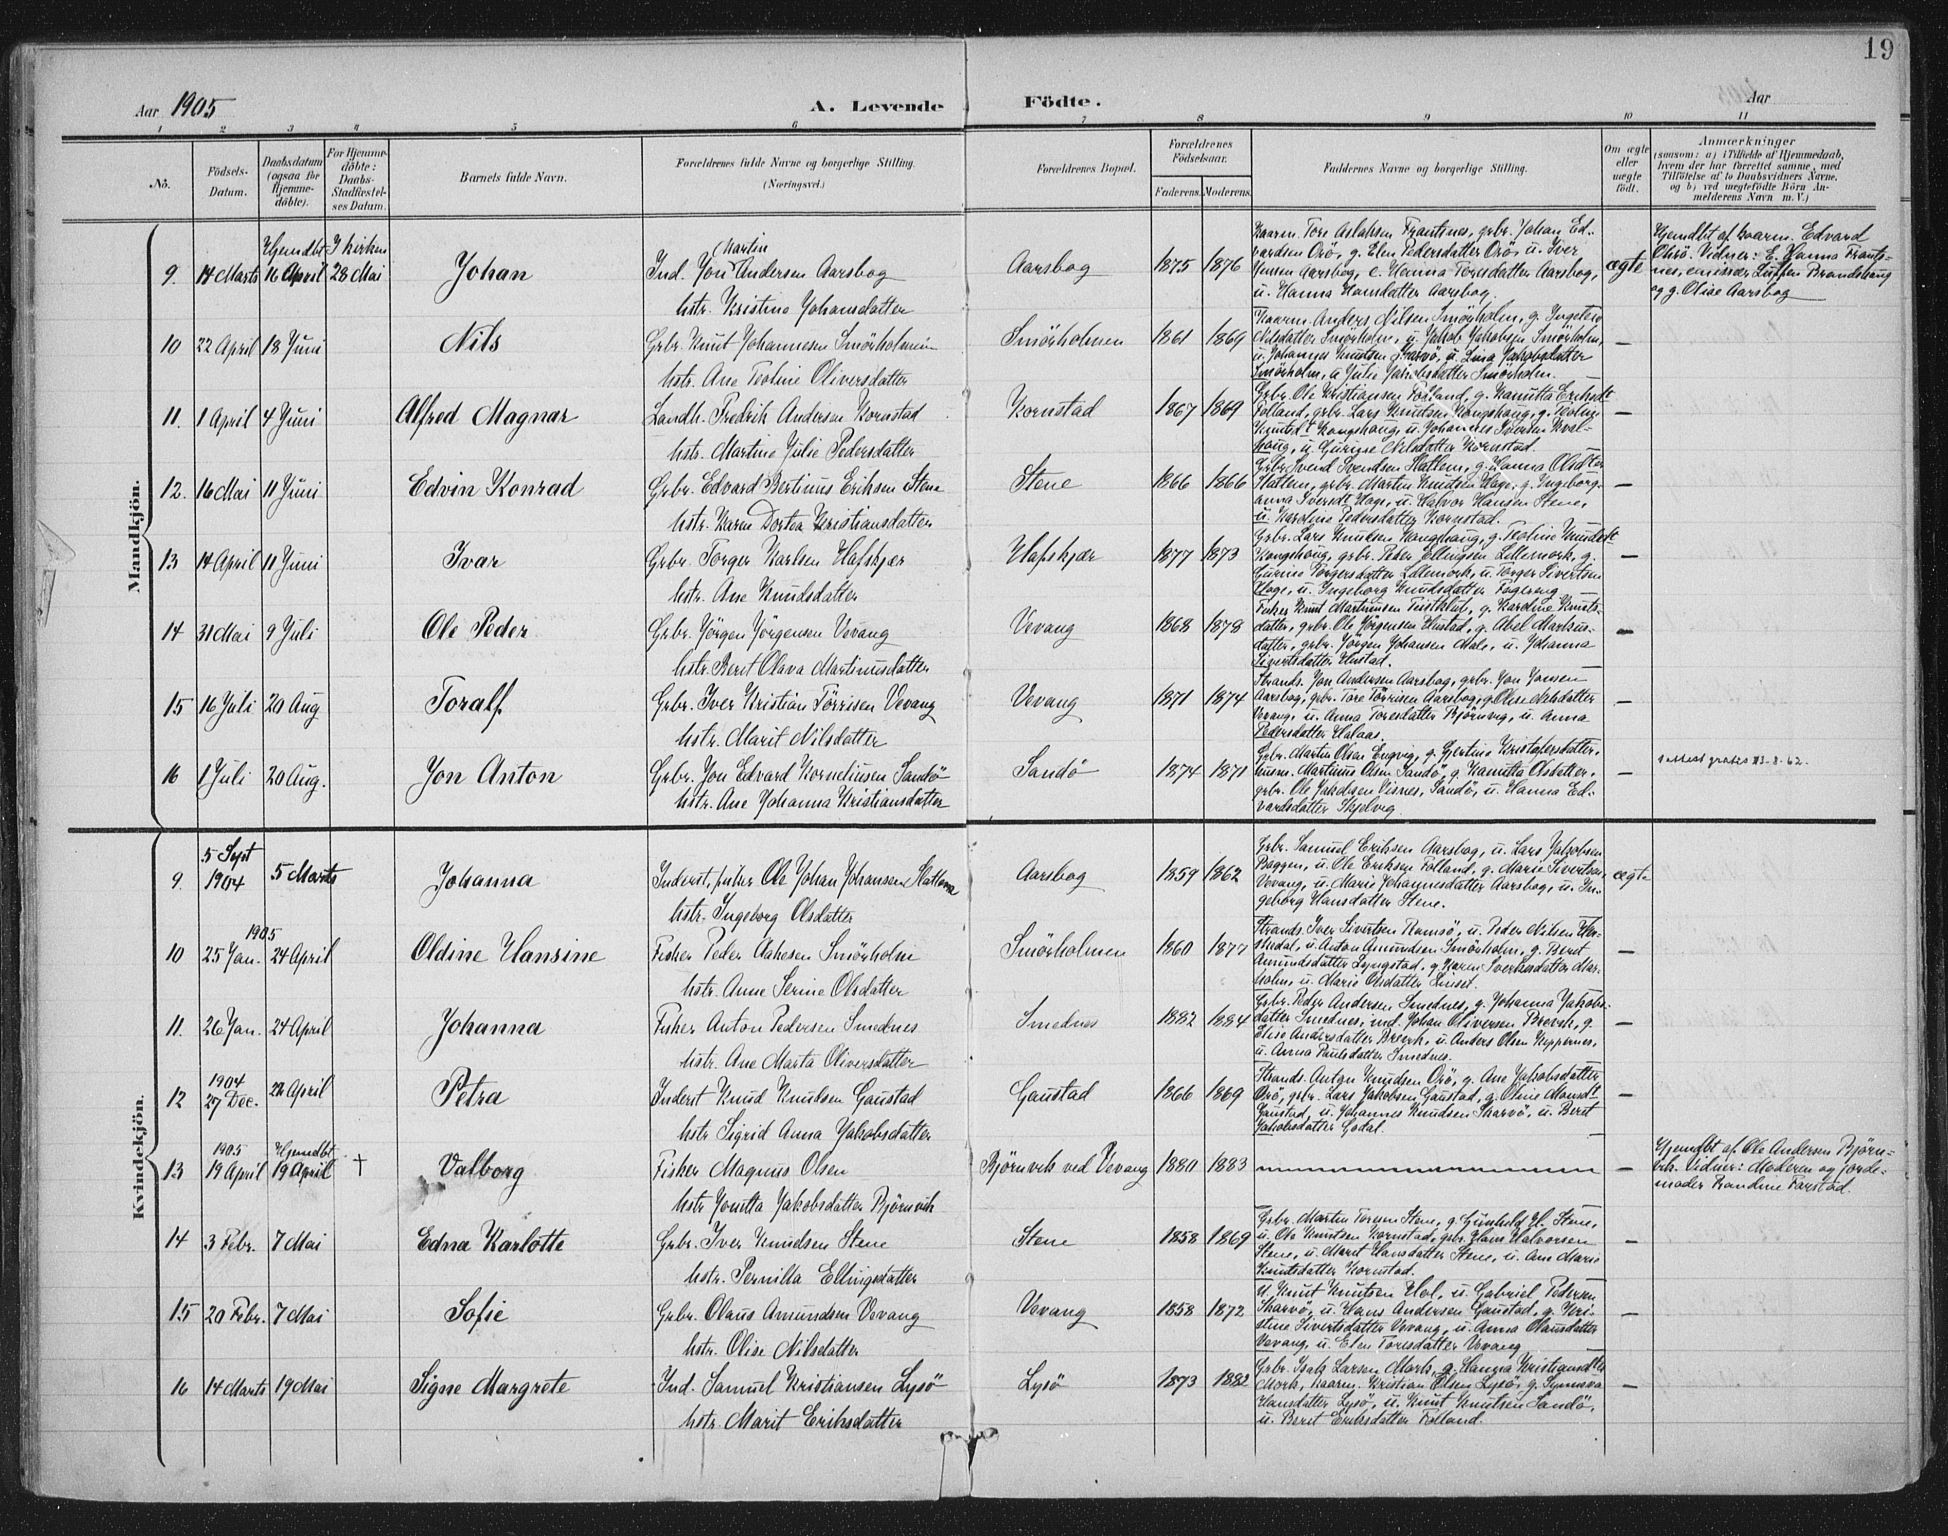 19
Aar 1905
A. Levende Födte.
Aar
1 2 3 4 5 6 7 8 9 10 11
No.
Födsels-Datum.
Daabsdatum (ogsaa for Hjemme-döbte).
For Hjemme-döbte: Daabs-Stadfæstel-ses Datum.
Barnets fulde Navn.
Forældrenes fulde Navne og borgerlige Stilling. (Næringsvei.)
Forældrenes Bopæl.
Forældrenes Födselsaar.
Faderens. Moderens.
Faddernes Navne og borgerlige Stilling.
Om ægte eller uægte födt.
Anmærkninger
(saasom: a) i Tilfælde af Hjemmedaab, hvem der har forrettet samme, med Tilföielse af to Daabsvidners Navne, og b) ved uægtefödte Börn An-melderens Navn m. V.)
Mandkjön.
9. 14 Marts Hjemdbt 16 April I kirken 28 Mai Johan Ind. Jon Martin Andersen Aarsbog
hstr. Kristine Johansdatter
Aarsbog 1875 1876
Johan Ed-
vardsen Orö, g. Elen Pedersdatter Orö, u. Iver
Jensen Aarsbog, e. Hanna Toresdatter Aarsbog,
u. Hanna Hansdatter Aarsbog.
ægte
Hjemdbt af kaarm. Edvard
Orö. Vidner: E. Hanna Frants-
nes, emissær Steffen Brandshaug
og g. Olise Aarsbog
10 22 April 18 Juni Nils Grbr. Knut Johannesen Smörholmen
hstr. Ane Teoline Oliversdatter
Smörholmen 1861 1869
Kaarm. Anders Nilsen Smörholm, g. Ingeleiv
Nilsdatter Smörholm, u. Jakob Jakobsen Smörholm,
u. Johannes Knutsen Skarvö, u. Lina Jakobsdatter
Smörholm, u. Julie Jakobsdatter Smörholm.
—
11. 1 April 4 Juni Alfred Magnar Landh. Fredrik Andersen Kornstad
hstr. Martine Julie Pedersdatter
Kornstad 1867 1869
Grbr. Ole Kristiansen Folland, g. Kanutta Eriksdt
Folland, grbr. Lars Knudsen Kongshaug, g. Teoline
Knutsdt Kongshaug, u. Johannes Iversen Kval-
haug, u. Gurine Nilsdatter Kornstad.
—
12. 16 Mai 11 Juni Edvin Konrad Grbr. Edvard Bertinus Eriksen Stene
hstr. Karen Dortea Kristiansdatter
Stene 1866 1866
Grbr. Svend Svendsen Slatlem, g. Hanna Olsdter
Slatlem, grbr. Martin Knutsen Hage, g. Ingeborg-
anna Iversdt Hage, u. Halvor Hansen Stene,
u. Karoline Pedersdatter Kornstad.
—
13 14 April 11 Juni Ivar Grbr. Torger Karlsen Hafskjær
hstr. Ane Knudsdatter
Hafskjær 1877 1873
Grbr. Lars Knudsen Kongshaug, g. Teoline Knudsdt
Kongshaug, grbr. Peder Ellingsen Lillemork, g.
Gurine Torgersdatter Lillemork, u. Torger Sivertsen
Hage, u. Ingeborg Knudsdatter Fugleeng
—
14 31 Mai 9 Juli Ole Peder Grbr. Jörgen Jörgensen Vevang
hstr. Beret Olava Martinusdatter
Vevang 1868 1878
Fisker Knut Martinusen Teistklub, g. Karoline Knuts-
datter, grbr. Ole Jörgensen Hustad, g. Abel Markus-
datter, grbr. Jörgen Johansen Male, u. Johanna
Sivertsdatter Hustad.
—
15 16 Juli 20 Aug Toralf. Grbr. Iver Kristian Törrisen Vevang
hstr. Marit Nilsdatter
Vevang 1871 1874
Strands. Jon Andersen Aarsbog, grbr. Jon Jonsen
Aarsbog, grbr. Tore Törrisen Aarsbog, g. Olise Nilsdatter
Vevang, u. Anna Toresdatter Björnvig, u. Anna
Pedersdatter Halaas.
—
16 1 Juli 20 Aug. Jon Anton Grbr. Jon Edvard Korneliusen Sandö
hstr. Ane Johanna Kristiansdatter
Sandö 1874 1871
Grbr. Martin Olsen Engvig, g. Gjertine Kristofersdatter,
husm. Martinus Olsen Sandö, g. Kanutta Olsdatter,
grbr. Ole Jakobsen Visnes, Sandö, u. Hanna Ed-
vardsdatter Skjelvig
—
Attest gratis 13-8-62.
Kvindekjön.
9. 5 Sept 1904 5 Marts Johanna Inderst, fisker Ole Johan Johansen Slatlem
hstr. Ingeborg Olsdatter
Aarsbog 1859 1862
Grbr. Samuel Eriksen Aarsbog, u. Lars Jakobsen
Baggen, u. Ole Eriksen Folland, g. Marie Sivertsen,
Vevang, u. Marie Johannesdatter Aarsbog, u. In-
geborg Hansdatter Stene.
ægte
10 1905 25 Jan. 24 April Oldine Hansine Fisker Peder Aakesen Smörholm
hstr. Anne Serine Olsdatter
Smörholmen 1860 1877
Strands. Iver Sivertsen Ramsö, u. Peder Nilsen
u. Anton Amundsen Smörholm, g. Beret
Amundsdatter Lyngstad, g. Karen Sverkesdatter Mar-
holm, u. Marie Olsdatter Linset.
—
11. 26 Jan. 24 April Johanna Fisker Anton Pedersen Smednes
hstr. Ane Marta Oliversdatter
Smednes 1882 1884
Grbr. Peder Andersen Smednes, g. Johanna Jakobs-
datter Smednes, ind. Johan Oliversen Brevik, g.
Elise Andersdatter Brevik, u. Anders Olsen Keppernes,
u. Anna Paulsdatter Smednes.
—
12 1904 27 Dec. 24 April Petra Inderst Knud Knudsen Gaustad
hstr Sigrid Anna Jakobsdatter
Gaustad 1866 1869
Strands. Anton Knudsen Orö, g. Ane Jakobsdatter
Orö, grbr. Lars Jakobsen Gaustad, g. Oline Monsdt
Gaustad, u. Johannes Knudsen Skarvö, u. Beret
Jakobsdatter Godal.
—
13 1905 19 April Hjemdbt 19 April † Valborg Fisker Magnus Olsen
hstr Jonetta Jakobsdatter Björnvik
Björnvik ved Vevang 1880 1883
—
Hjemdbt af Ole Andersen Björn-
vik. Vidner: Moderen og jorde-
moder Randine Farstad.
14 3 Febr. 7 Mai Edna Karlotte Grbr. Iver Knudsen Stene
hstr. Pernilla Ellingsdatter
Stene 1858 1869
Grbr. Martin Toresen Stene, g. Gunhild H. Stene,
u. Ole Knutsen Kornstad, grbr. Hans Halvorsen
Stene, u. Marit Hansdatter Stene, u. Ane Marie
Knutsdatter Kornstad.
—
15 20 Febr. 7 Mai Sofie Grbr. Olaus Amundsen Vevang
hstr. Olise Nilsdatter
Vevang 1858 1872
U. Knut Knutsen Hol, u. Gabriel Pedersen
Skarvö, u. Hans Andersen Gaustad, g. Kri-
stine Sivertsdatter Vevang, u. Anna Olausdatter
Vevang, u. Elen Toresdatter Vevang
—
16 14 Marts 19 Mai Signe Margrete Ind. Samuel Kristiansen Lysö
hstr. Marit Eriksdatter
Lysö 1873 1882
Grbr. Isak Larsen Mork, g. Hanna Kristiansdtter
Mork, kaarm. Kristian Olsen Lysö, g. Synnöva
Hansdatter Lysö, u. Knut Knutsen Sandö,
u. Beret Eriksdatter Folland.
—